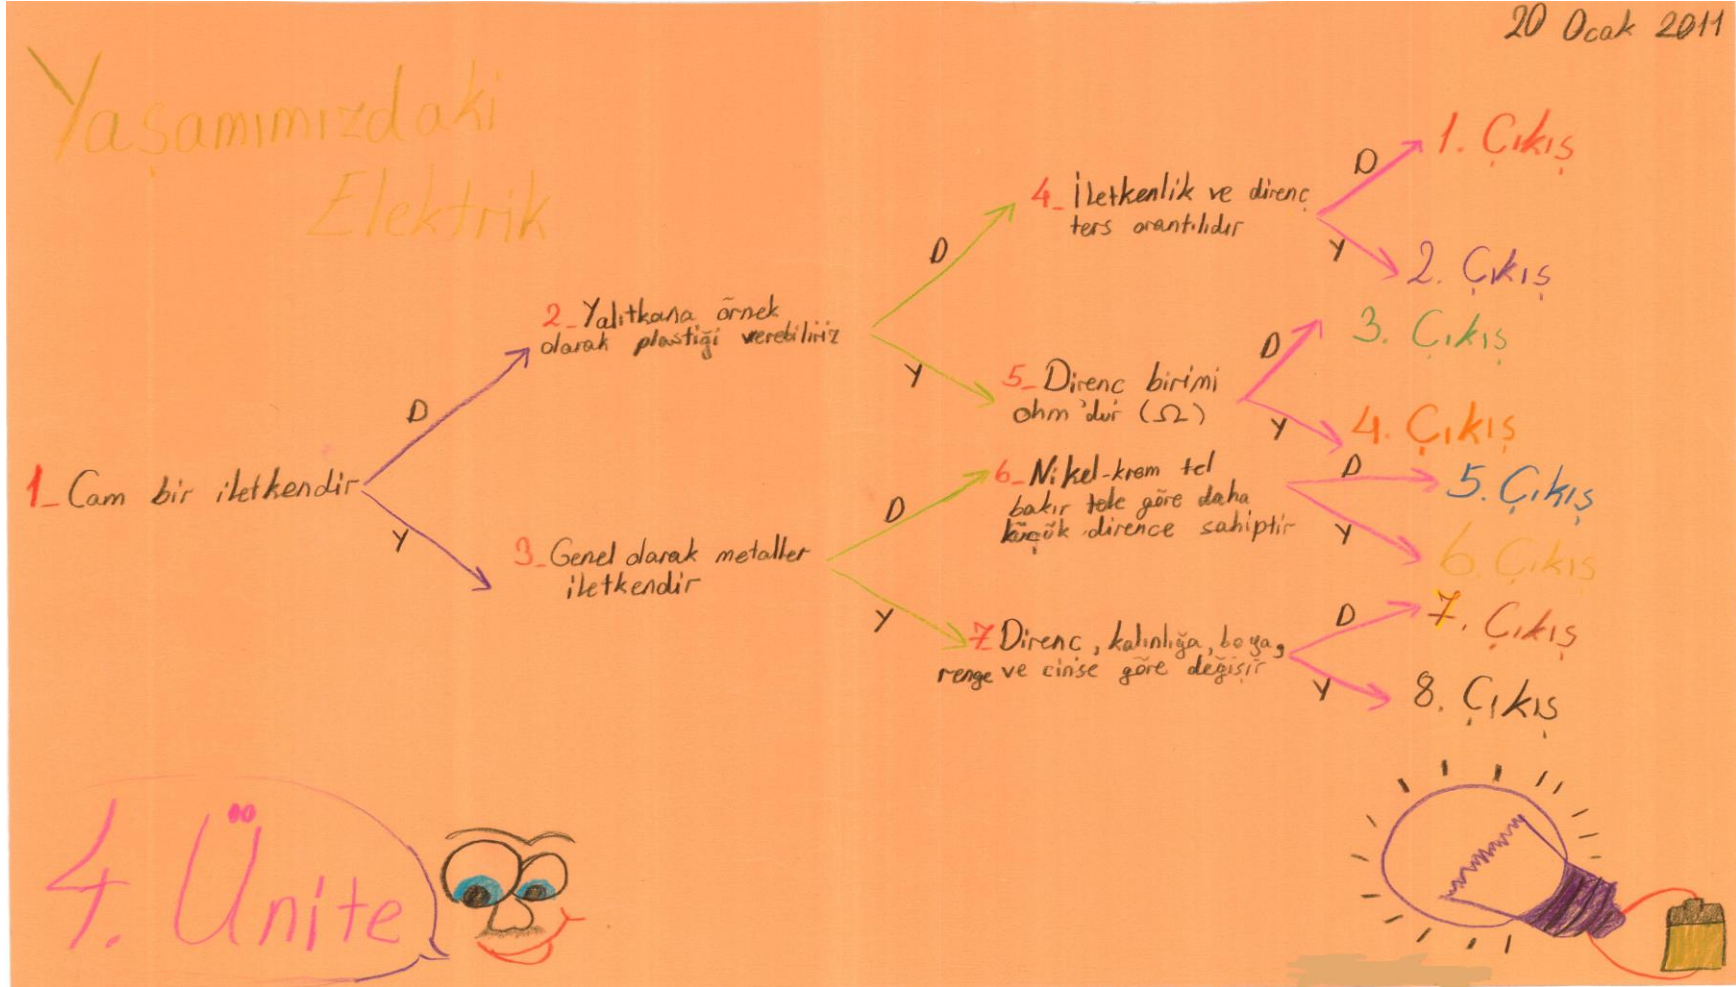 20 Ocak 2011
Yaşamımızdaki
Elektrik
1_ Cam bir iletkendir
D
Y
2_ Yalıtkana örnek
olarak plastiği verebiliriz
D
Y
3_ Genel olarak metaller
iletkendir
D
Y
4_ İletkenlik ve direnç
ters orantılıdır
D
Y
5_ Direnç birimi
ohm'dur (Ω)
D
Y
6_ Nikel-krom tel
bakır tele göre daha
küçük dirence sahiptir
D
Y
7 Direnç, kalınlığa, boya,
renge ve cinse göre değişir
D
Y
1. Çıkış
2. Çıkış
3. Çıkış
4. Çıkış
5. Çıkış
6. Çıkış
7. Çıkış
8. Çıkış
4. Ünite